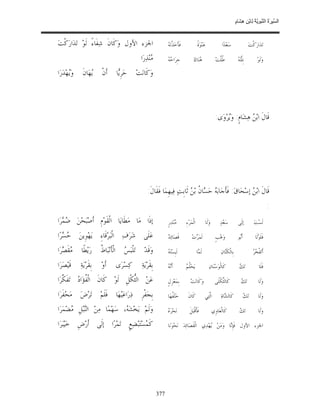 السِّيرَةُ النَّبَوِيَّةُ لِابْنِ هِشَامٍ
تَدَارَكْت سَعْدًا عَنْوَةً فَأَخَذْتُهُ الجزء الأول وَكَانَ شِفَاءً لَوْ تَدَارَكْتُ مُنْذِرَا
وَلَوْ نِلْتُهُ طُلَّتْ هُنَاكَ جِرَاحُهُ وَكَانَتْ حَرِيًّا أَنْ يُهَانَ وَيُهْدَرَا
قَالَ ابْنُ هِشَامٍ وَيُرْوَى
قَالَ ابْنُ إسْحَاقَ فَأَجَابَهُ حَسَّانُ بْنُ ثَابِتٍ فِيهِمَا فَقَالَ
لَسْتَ إلَى سَعْدٍ وَلَا الْمَرْءِ مُنْذِرٍ إذَا مَا مَطَايَا الْقَوْمِ أَصْبَحْنَ ضُمَّرَا
فَلَوْلَا أَبُو وَهْبٍ لَمَرَّتْ قَصَائِدُ عَلَى شَرَفِ الْبَرْقَاءِ يَهْوِينَ حُسَّرَا
أَتَفْخَرُ بِالْكَتَّانِ لَمَّا لَبِسْتَهُ وَقَدْ تَلْبَسُ الْأَنْبَاطُ رَيْطًا مُقَصَّرَا
فَلَا تَكُ كَالْوَسْنَانِ يَحْلُمُ أَنَّهُ بِقَرْيَةِ كِسْرَى أَوْ بِقَرْيَةِ قَيْصَرَا
وَلَا تَكُ كَالثَّكْلَى وَكَانَتْ بِمَعْزِلِ عَنْ الثُّكْلِ لَوْ كَانَ الْفُؤَادُ تَفَكَّرَا
وَلَا تَكُ كَالشَّاةِ الَّتِي كَانَ حَتْفُهَا بِحَفْرِ ذِرَاعَيْهَا فَلَمْ تَرْضَ مَحْفَرَا
وَلَا تَكُ كَالْعَاوِي فَأَقْبَلَ نَحْرَهُ وَلَمْ يَخْشَهُ، سَهْمًا مِنْ النَّبْلِ مُضْمَرَا
الجزء الأول فَإِنَّا وَمَنْ يُهْدِي الْقَصَائِدَ نَحْوَنَا كَمُسْتَبْضِعٍ تَمْرًا إلَى أَرْضِ خَيْبَرَا
377